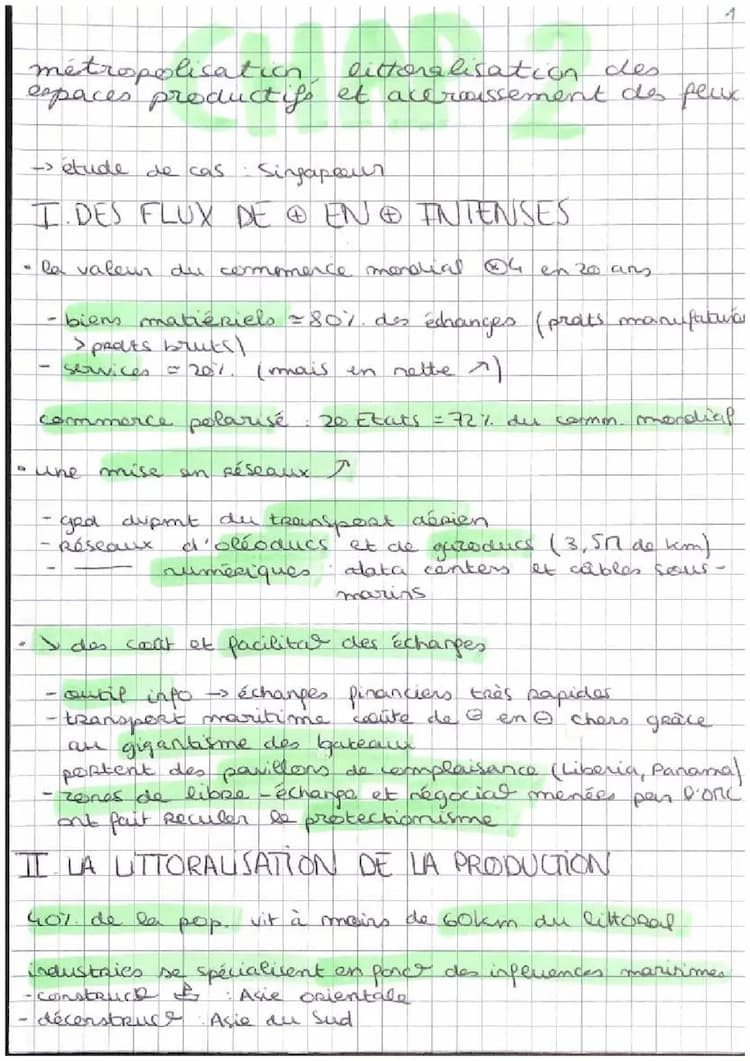 1
CHAP 2
métropolisation, littoralisation des
espaces productifs et accroissement des feux
-> étude de cas : Singapour
I. DES FLUX DE ⊕ EN ⊕ INTENSES
• la valeur du commerce mondial ⊗4 en 20 ans
- biens matériels = 80% des échanges (prdts manufatura
> prdts bruts)
- services = 20% (mais en nette ↗)
commerce polarisé : 20 Etats = 72% du comm. mondial
• une mise en réseaux ↗
- grd dvpmt du transport aérien
- Réseaux d'oléoducs et de gazoducs (3,5M de km)
- —— numériques : data centers et câbles sous-
marins
• ↘ des coût et facilitat° des échanges
- outil info -> échanges financiers très rapides
- transport maritime coûte de ⊖ en ⊖ chers grâce
au gigantisme des bateaux
portent des pavillons de complaisance (Liberia, Panama)
- zones de libre-échange et négociat° menées par l'OMC
ont fait reculer le protectionisme
II LA LITTORALISATION DE LA PRODUCTION
40% de la pop. vit à moins de 60km du littoral
industries se spécialisent en fonct° des influences maritimes
- construct° ⛴ : Asie orientale
- déconstruct° : Asie du Sud